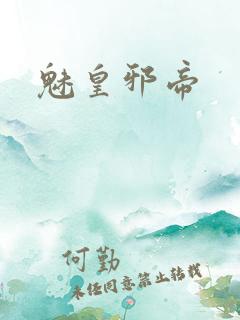 魅皇邪帝
何勤
未经同意禁止转载